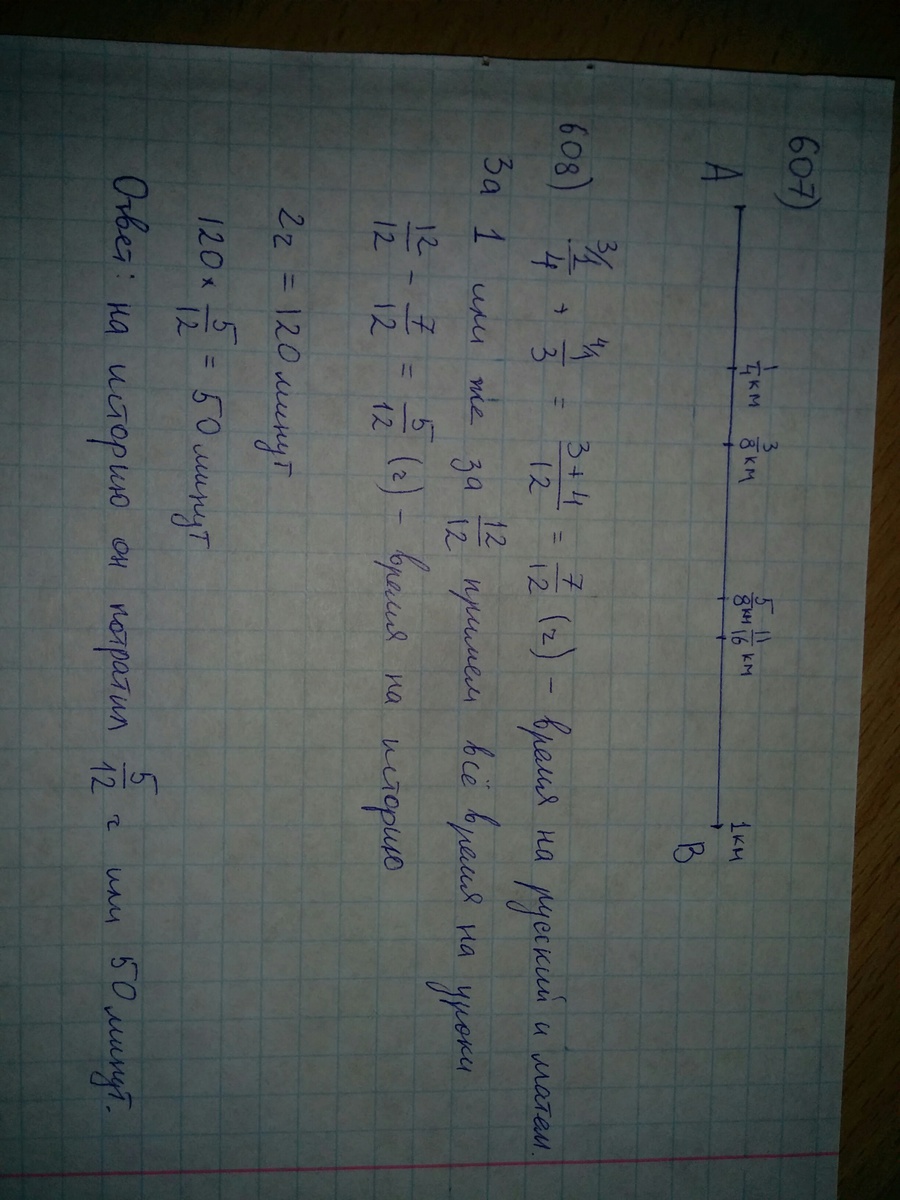 607)
A 1/4 км 3/8 км 5/8 км 11/16 км 1 км B
608) 3/1/4 + 4/1/3 = 3+4/12 = 7/12 (ч) – время на русский и матем.
За 1 или же за 12/12 примем всё время на уроки
12/12 - 7/12 = 5/12 (ч) – время на историю
2ч = 120 минут
120 × 5/12 = 50 минут
Ответ: на историю он потратил 5/12 ч или 50 минут.